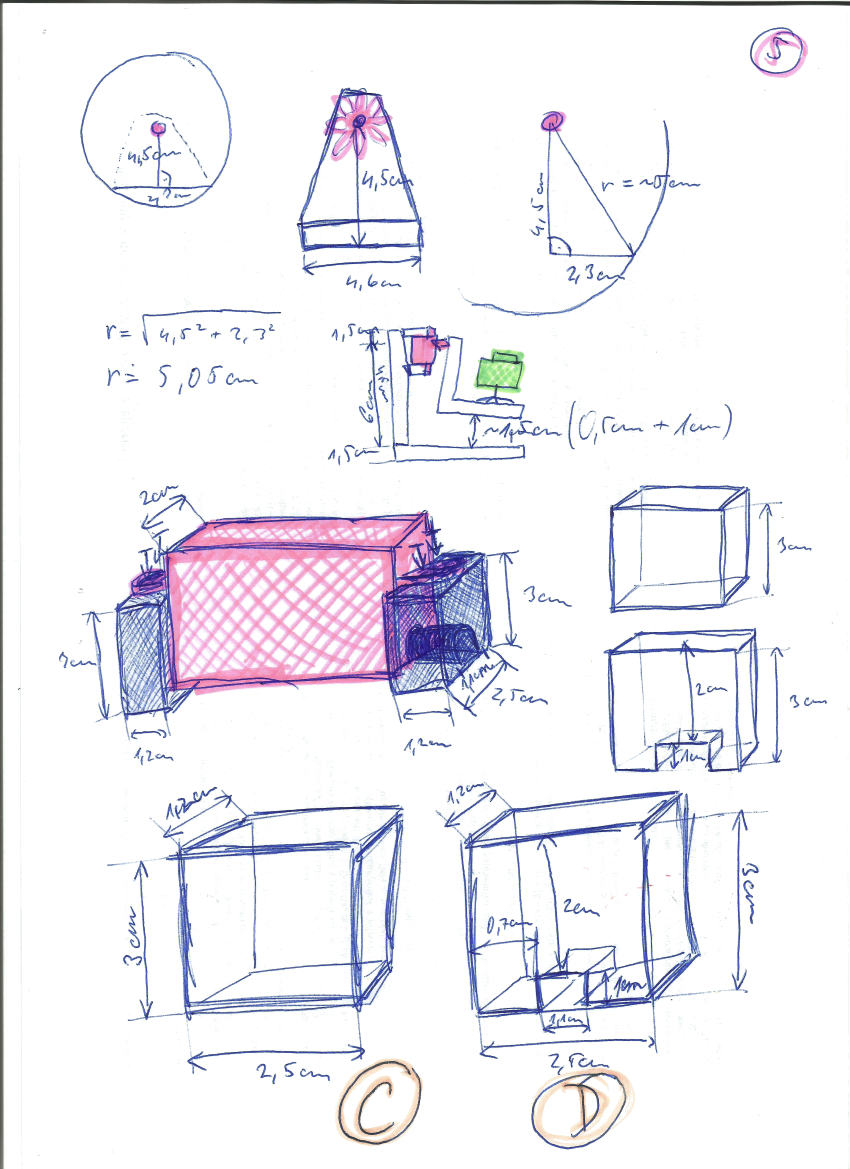 5
4,5cm
4,5cm
4,6cm
4,5cm
r = ~5cm
2,3cm
r = √4,5² + 2,3²
r ≐ 5,05cm
1,5cm
6cm
1,5cm
~1,5cm (0,5cm + 1cm)
2cm
3cm
3cm
3cm
1,1cm
2,5cm
1,2cm
1,2cm
2cm
1cm
3cm
1,2cm
3cm
2,5cm
C
1,2cm
2cm
0,7cm
3cm
1cm
1,1cm
2,5cm
D